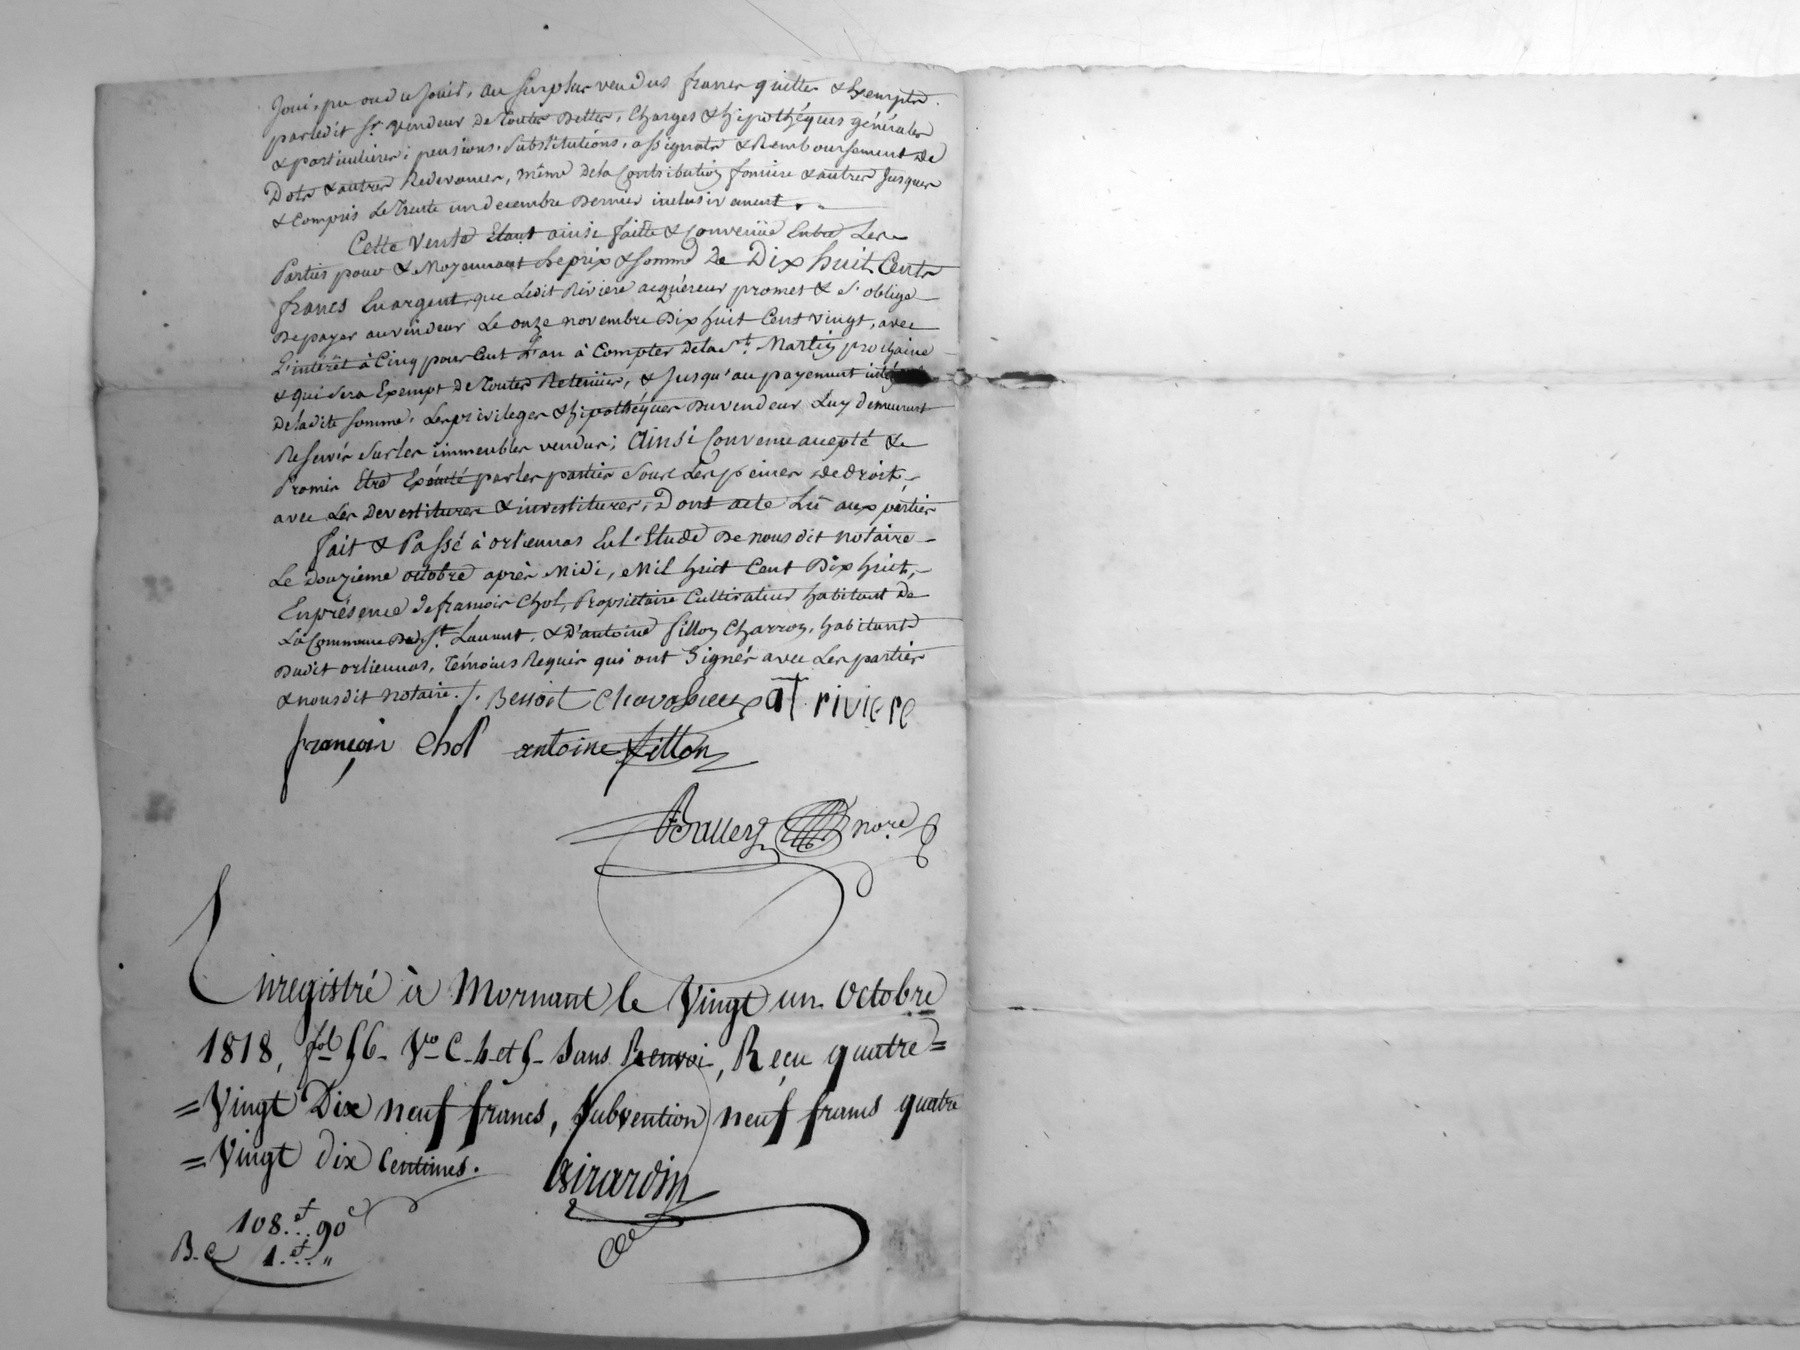 Joui, pu ou du Jouir, au surplus vendus francs quittes & Exempts
par ledit Sr. vendeur de toutes dettes, Charges & hipothéques générales
& particulieres, pensions, substitutions, assignats & Remboursement de
Dots & autres Redevances, même de la Contribution fonciere & autres Jusques
& Compris Le Trente un decembre dernier inclusivement.
Cette Vente Etant ainsi faitte & Convenüe Entre Les
Parties pour & Moyennant Le prix & somme De Dix huit Cents
francs En argent, que Ledit Riviere acquéreur promet & s'oblige
De payer au vendeur Le onze novembre Dix huit Cent vingt, avec
L'intérêt à Cinq pour Cent L'an à Compter de la St. Martin prochaine
& qui sera Exempt de Toutes Retenües, & Jusqu'au payement
De ladite somme, Les privileges & hipothéques du vendeur Luy demeurent
Reservés sur les immeubles vendus; Ainsi Convenu accepté &
Promis Etre Exécuté par les parties sous Les peines de droit,
avec Les Devestitures & investitures, Dont acte Lû aux parties
fait & Passé à orliennas En L'Etude De nous dit notaire
Le douzieme octobre après Midi, Mil huit Cent Dix huit,
En présence de françois Chol, Propriétaire Cultivateur habitant de
La Commune de St. Laurent, & d'antoine fillon Charron, habitant
Dudit orliennas, Témoins Requis qui ont Signés avec Les parties
& nous dit notaire ./. Benoit Chavassieux at riviere
françois Chol antoine fillon
nore
Enregistré à Mornant le Vingt un Octobre
1818, fol 56 Vo C. 4 et 5 Sans Renvoi, Reçu quatre=
=Vingt Dix neuf francs, Subvention neuf francs quatre
=Vingt dix Centimes. Girardin
108.f..90c
B.C 1.f..."